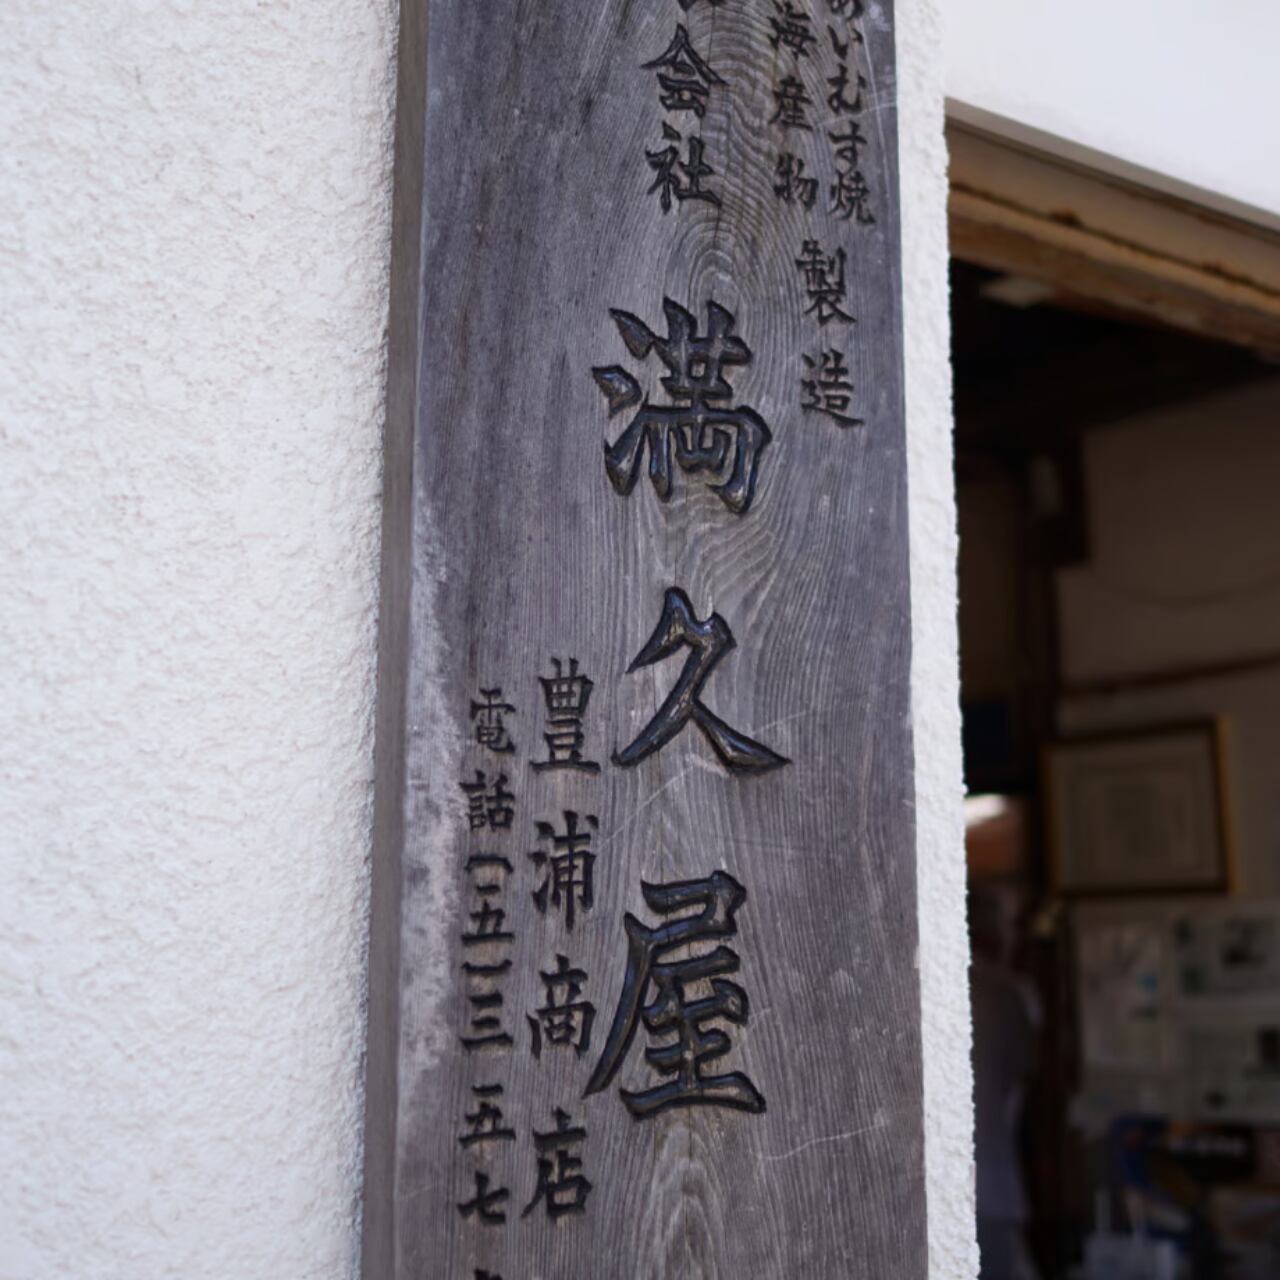 あいむす焼
海産物
製造
会社 満久屋
豊浦商店
電話(二五)三二五七